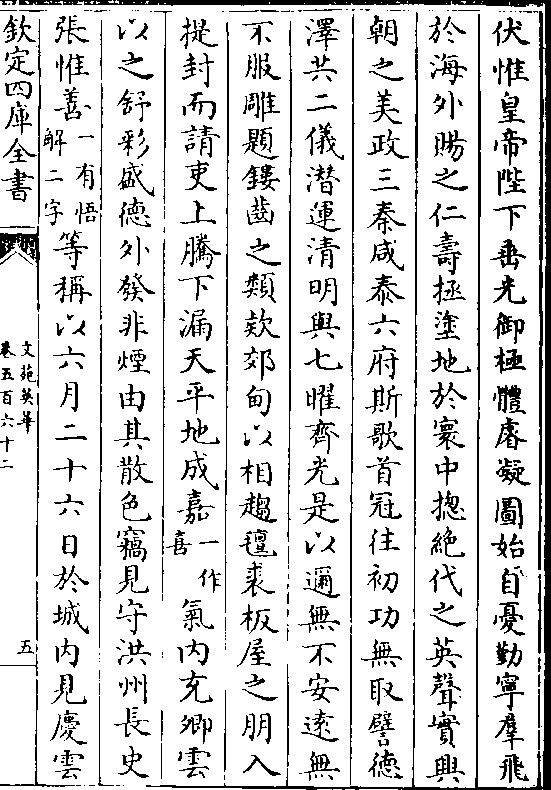 伏惟皇帝陛下垂光御極體睿凝圖始自憂勤寧羣飛
於海外賜之仁壽拯塗地於寰中揔絶代之英聲實興
朝之美政三秦咸泰六府斯歌首冠徃初功無取譬德
澤共二儀潜運清明與七曜齊光是以邇無不安逺無
不服雕題鏤齒之類欵郊甸以相趨氊裘板屋之朋入
提封而請吏上騰下漏天平地成嘉一作喜氣内充卿雲
以之舒彩盛德外發非煙由其散色竊見守洪州長史
張惟善一有悟解二字等稱以六月二十六日於城内見慶雲
欽定四庫全書
文苑英華
卷五百六十二
五